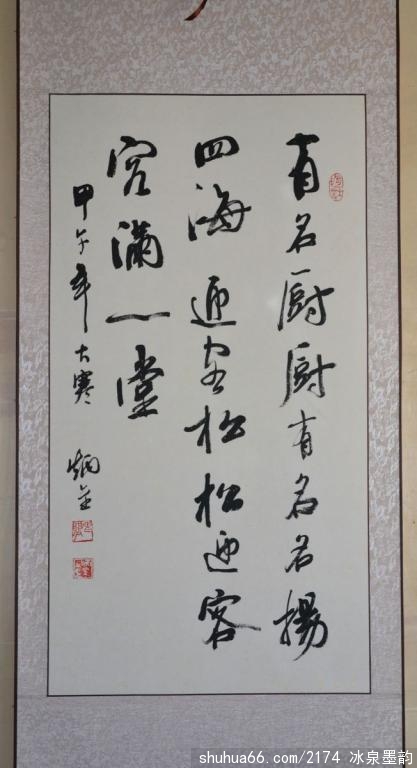 有名厨厨有名名揚
四海迎客松松迎客
客滿一堂
甲午年大寒 炳金
shuhua66.com/2174 冰泉墨韵